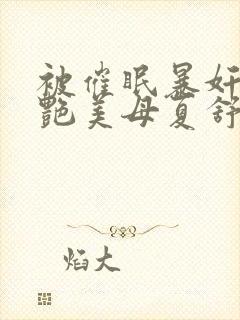 被催眠暴奸
艷美母夏舒
焰大